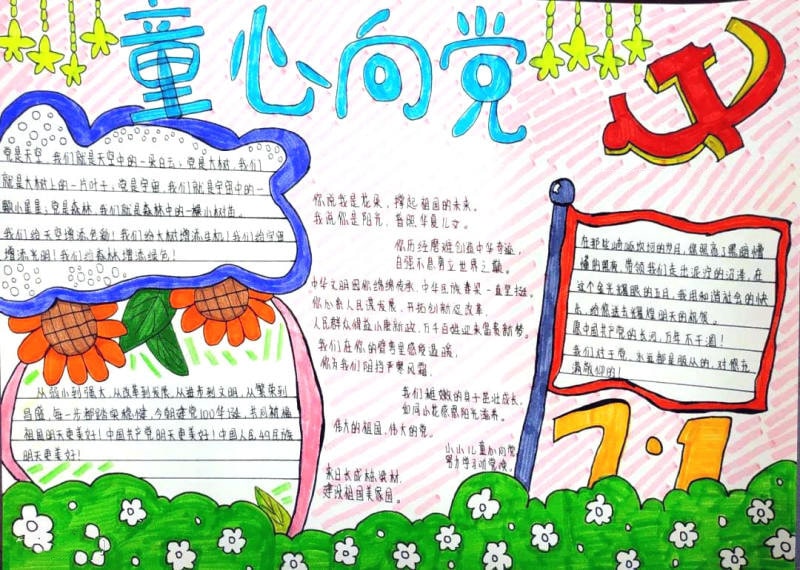 童心向党
党是天空，我们就是天空中的一朵白云；党是大树，我们
就是大树上的一片叶子；党是宇宙，我们就是宇宙中的一
颗小星星；党是森林，我们就是森林中的一棵小树苗。
我们给天空增添色彩！我们给大树增添生机！我们给宇宙
增添光明！我们给森林增添绿色！
从弱小到强大，从改革到发展，从进步到文明，从繁荣到
昌盛，每一步都踏实稳健，今朝建党100华诞，共同祝福
祖国明天更美好！中国共产党明天更美好！中国人民
明天更美好！
你说我是花朵，撑起祖国的未来。
我说你是阳光，普照华夏儿女。
你历经磨难创造中华奇迹，
自强不息勇立世界之巅。
中华文明因你绵绵传承，中华民族脊梁一直坚挺。
你心系人民谋发展，开拓创新促改革，
人民群众倾注小康新政，万千百姓迎来伟大新梦。
我们在你的臂弯里感受温暖，
你为我们阻挡严寒风霜。
我们稚嫩的身子茁壮成长，
如同小花感恩阳光滋养。
伟大的祖国，伟大的党。
小小儿童心向党
努力学习动党魂，
来日长成栋梁材，
建设祖国美家园。
在那崎岖坎坷的岁月，你驱亮了黑暗懵
懂的黑夜，带领我们走出泥泞的沼泽，在
这个金光耀眼的五月，我用和谐社会的快
乐，给您送去辉煌明天的祝愿。
愿中国共产党的长河，万年不干涸！
我们对于党，永远都是服从的，对恨充
满敬仰的！
7·1